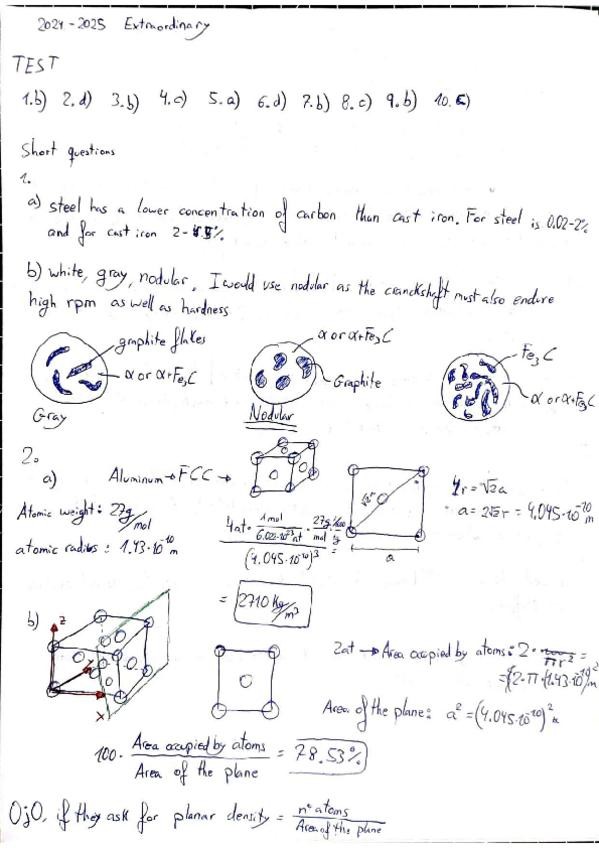 2024-2025 Extraordinary
TEST
1.b) 2.d) 3.b) 4.c) 5.a) 6.d) 7.b) 8.c) 9.b) 10.c)
Short questions
1.
a) steel has a lower concentration of carbon than cast iron. For steel is 0.02-2%
and for cast iron 2-
b) white, gray, nodular, I would use nodular as the cranckshaft must also endure
high rpm as well as hardness
graphite flakes
α or α+Fe3C
Gray
α or α+Fe3C
Graphite
Nodular
Fe3C
α or α+Fe3C
2.
a) Aluminum → FCC →
Atomic weight: 27g/mol
atomic radius: 1.43·10^-10 m
4at · 1mol/6.022·10^23at · 27g/mol ·
(4.045·10^-10)^3 =
= 2710 Kg/m^3
a
4r = √2a
a = 2√2r = 4.045·10^-10 m
b)
z
x
2at → Area occupied by atoms: 2· πr^2 =
= (2·π·(1.43·10^-10)^2 m
Area of the plane: a^2 = (4.045·10^-10)^2 m
100 · Area occupied by atoms / Area of the plane = 78.53%
OjO, if they ask for planar density = nº atoms / Area of the plane